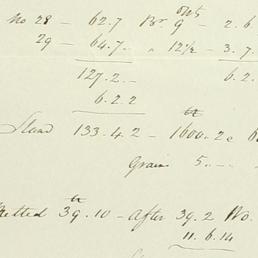 No 28 - 62.7 Br 9 - 2.6
29 - 64.7 - " 12½ - 3.7
127.2 - 6.2.
6.2.2
133.4.2 - 1600.2
Grain 5
39.10 - After 39.2 Wo.
11.6.14